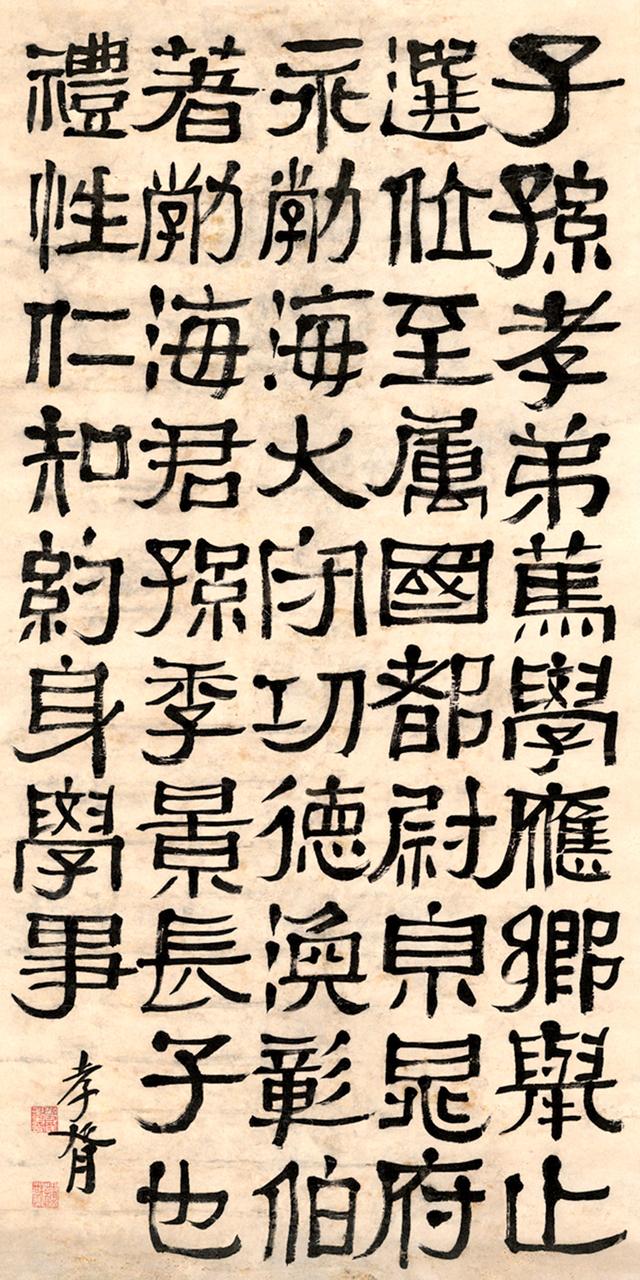 子孫孝弟篤學應鄉舉止
選位至属國都尉京晁府
丞勃海大守功德渙彰伯
著勃海君孫季景長子也
禮性仁知約身學事
孝胥